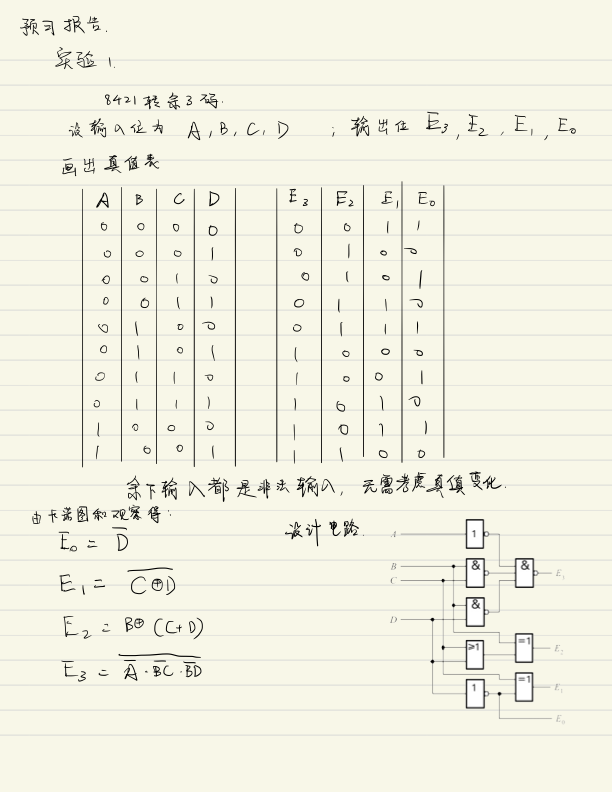 预习报告.
实验 1.
8421 转余3码.
设输入位为 A, B, C, D ; 输出位 E₃, E₂, E₁, E₀
画出真值表
A B C D E₃ E₂ E₁ E₀
0 0 0 0 0 0 1 1
0 0 0 1 0 1 0 0
0 0 1 0 0 1 0 1
0 0 1 1 0 1 1 0
0 1 0 0 0 1 1 1
0 1 0 1 1 0 0 0
0 1 1 0 1 0 0 1
0 1 1 1 1 0 1 0
1 0 0 0 1 0 1 1
1 0 0 1 1 1 0 0
余下输入都是非法输入, 无需考虑真值变化.
由卡诺图和观察得:
设计电路.
E₀ = D̅
E₁ = \overline{C⊕D}
E₂ = B⊕(C+D)
E₃ = \overline{\overline{A}·\overline{BC}·\overline{BD}}
A 1
B & & E₃
C
D &
≥1 =1 E₂
1 =1 E₁
E₀